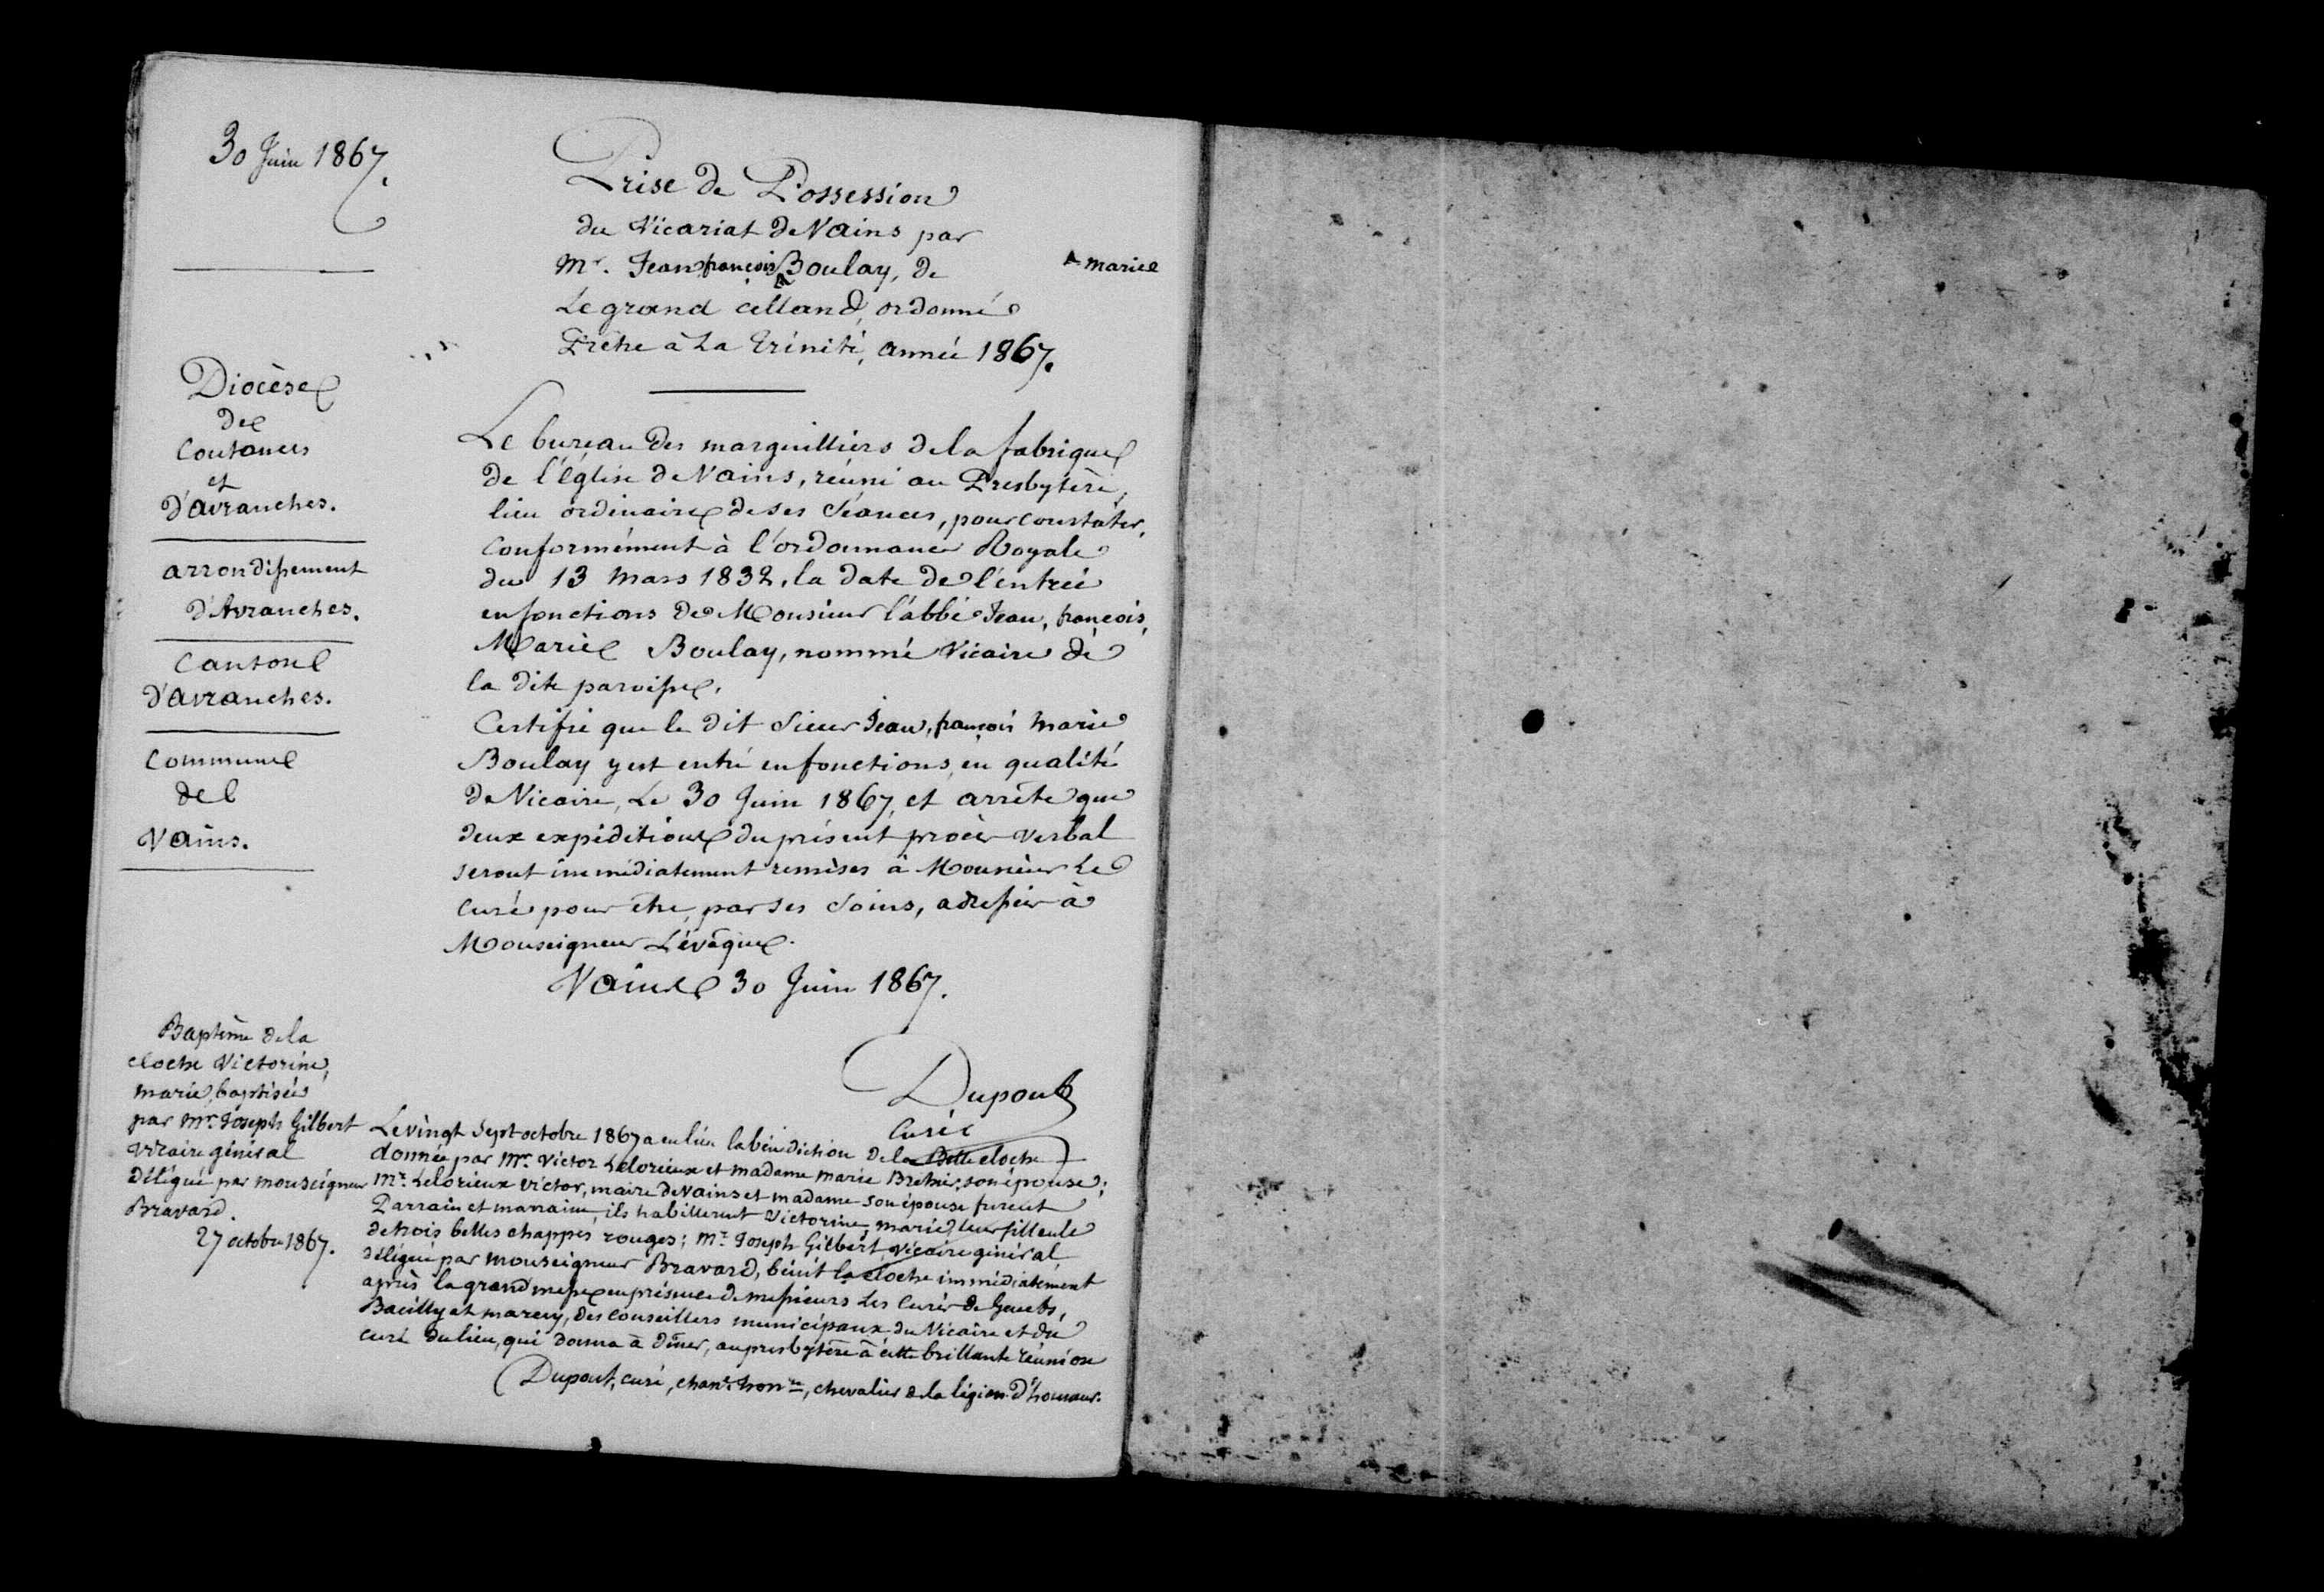 30 Juin 1867.
Prise de Possession
du Vicariat de Vains par
Mr. Jean françois Boulay, de
marie
Le grand celland, ordonné
Prêtre à La Trinité, année 1867.
Diocèse
de
Coutances
et
d'avranches.
arrondissement
d'Avranches.
Canton
d'avranches.
Commune
de
Vains.
Le bureau des marguilliers de la fabrique
de l'église de Vains, réuni au Presbytère,
lieu ordinaire de ses séances, pour constater,
conformément à l'ordonnance Royale
du 13 mars 1832, la date de l'entrée
en fonctions de Monsieur l'abbé Jean, françois,
Marie Boulay, nommé Vicaire de
la dite paroisse,
Certifie que le dit sieur Jean, françois marie
Boulay y est entré en fonctions, en qualité
de Vicaire, Le 30 Juin 1867, et arrête que
deux expéditions du présent procès verbal
seront immédiatement remises à Monsieur Le
Curé pour être, par ses soins, adressées à
Monseigneur L'évêque.
Vains 30 Juin 1867.
Dupont
Curé
Baptême de la
cloche Victorine,
marie, baptisée
par Mr. Joseph Gilbert
Vicaire général
délégué par monseigneur
Bravard.
27 octobre 1867.
Le vingt sept octobre 1867 a eu lieu la bénédiction de la Belle cloche
donnée par Mr. Victor Lelorieux et madame marie Brehier, son épouse;
Mr. Lelorieux Victor, maire de Vains et madame son épouse furent
Parrain et marraine, ils habillerent Victorine, marie, leur filleule
de trois belles chappes rouges; Mr. Joseph Gilbert, Vicaire général,
délégué par monseigneur Bravard, bénit la cloche immédiatement
après la grand messe en présence de messieurs Les Curés de Genets,
Bacilly et marcey, des conseillers municipaux du Vicaire et du
curé du lieu, qui donna à dîner, au presbytère à cette brillante réunion
Dupont, curé, chane. honre, chevalier de la légion d'honneur.